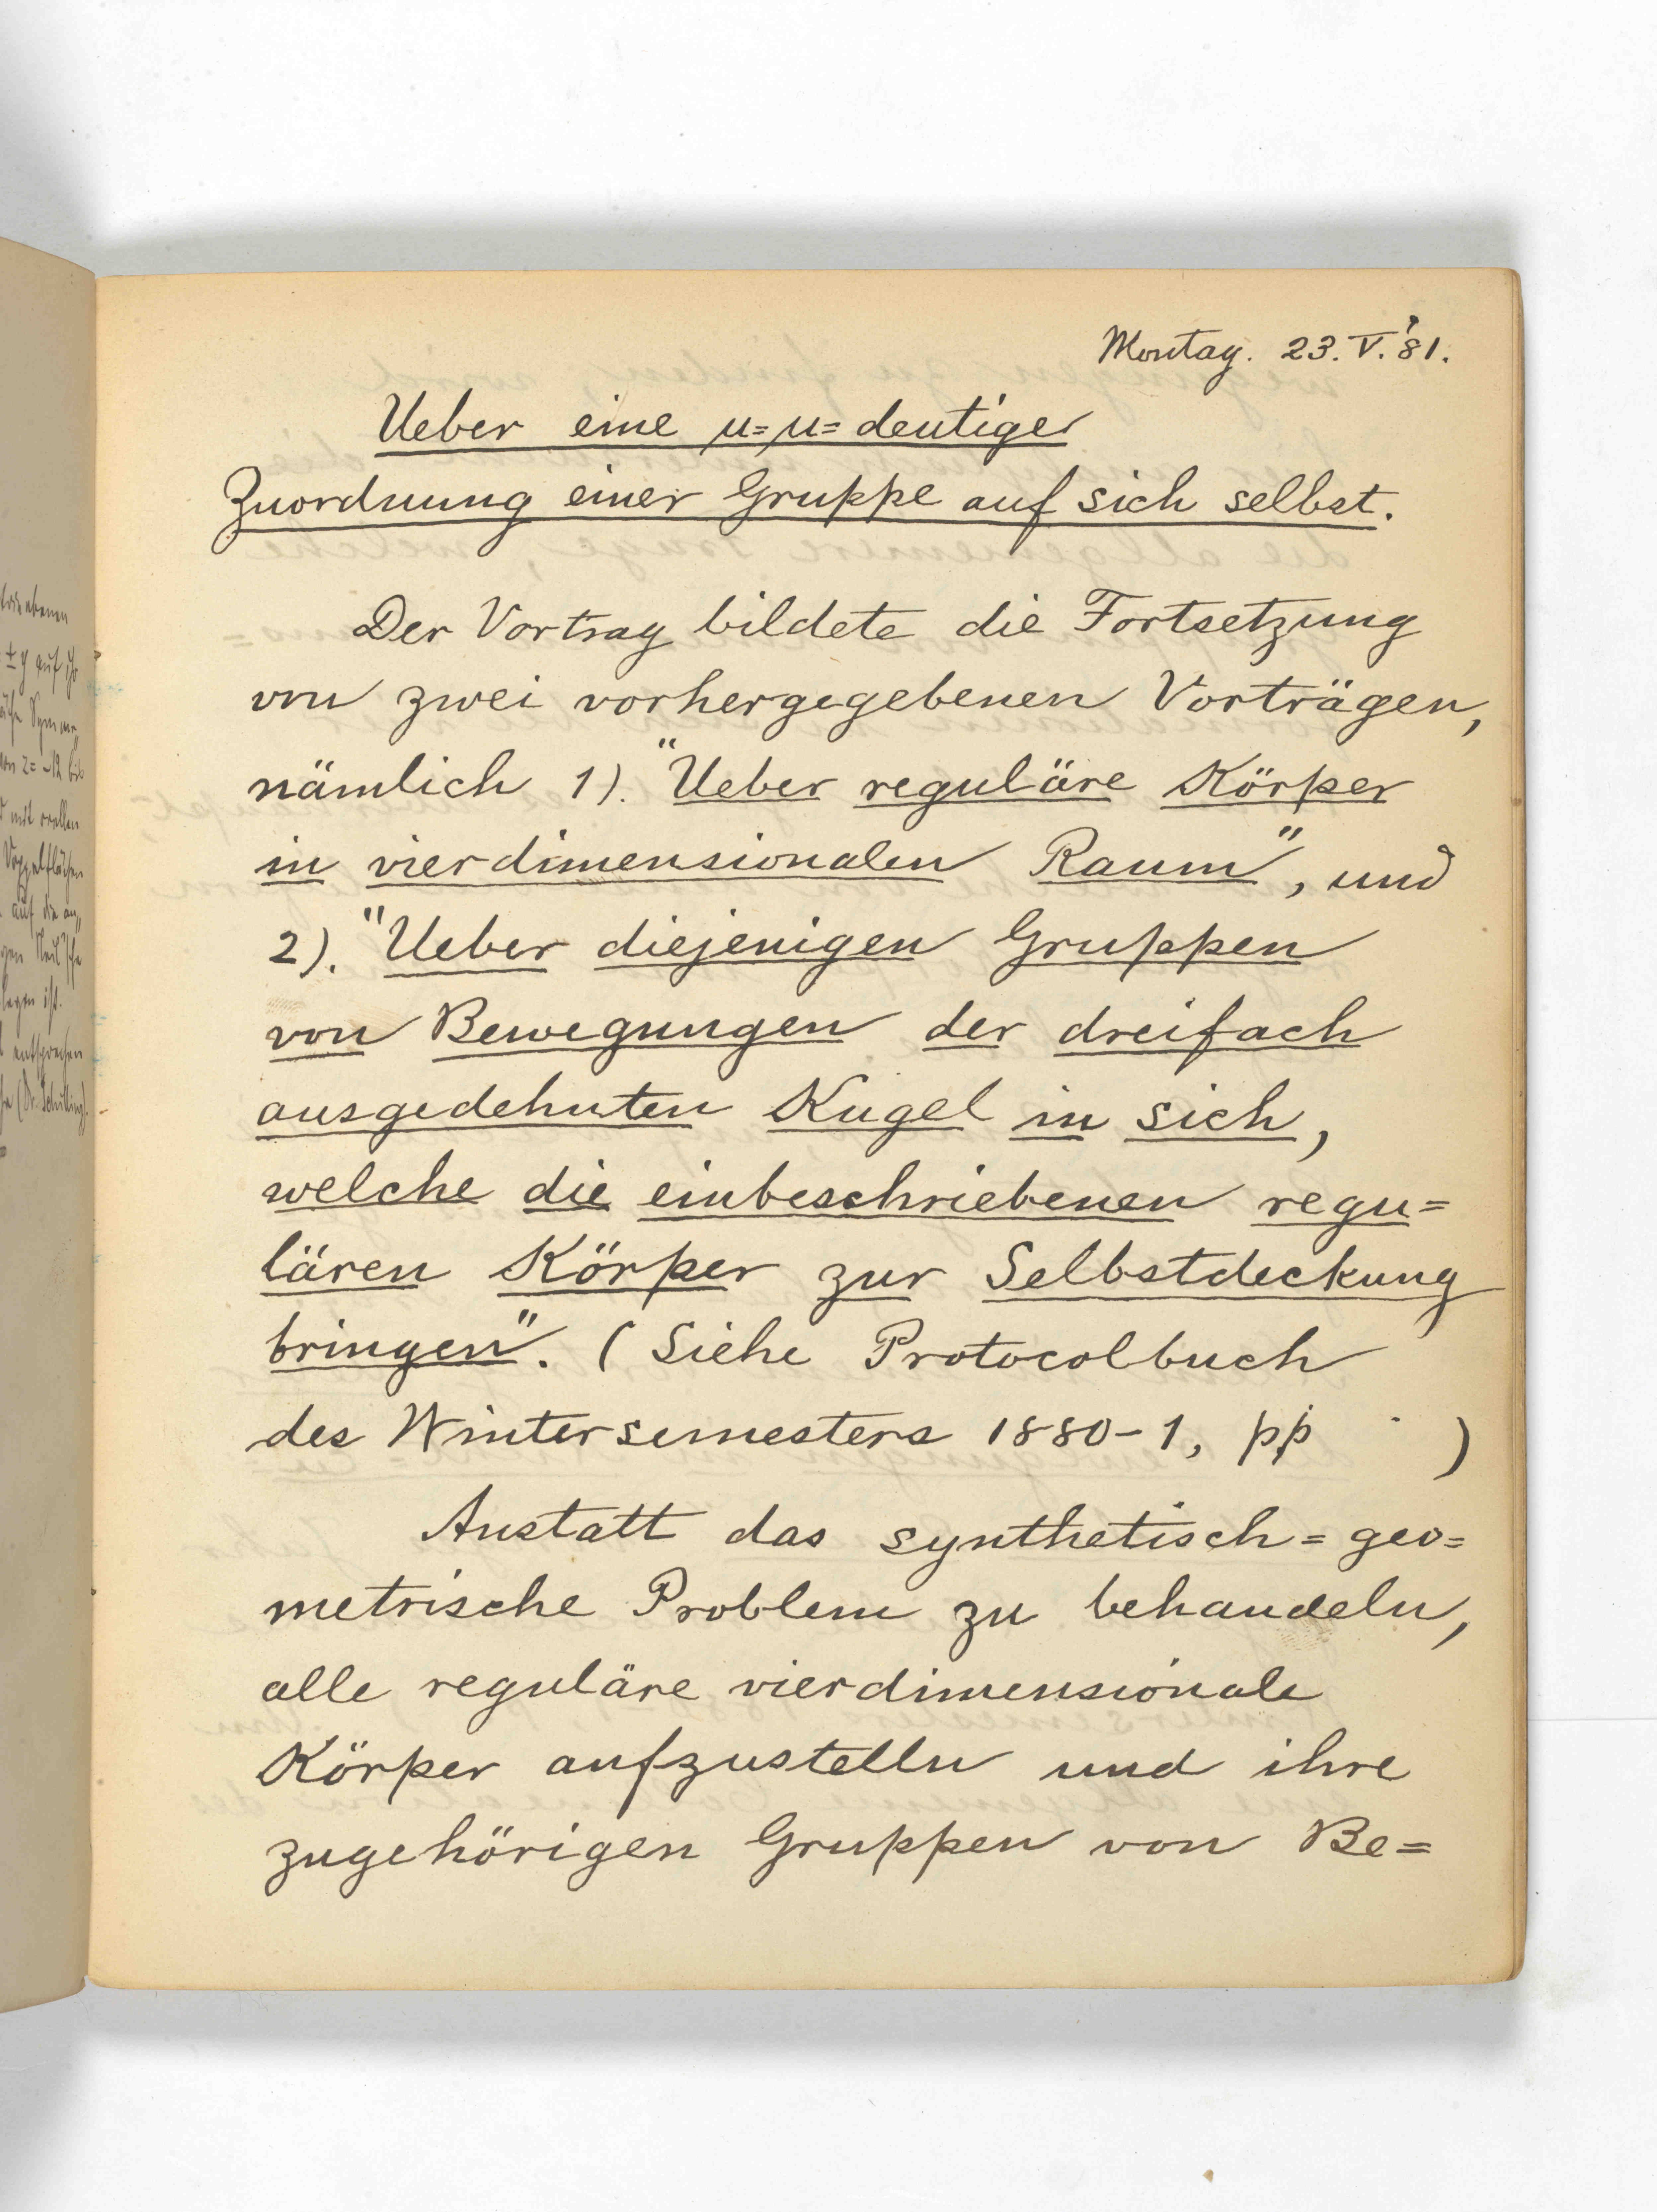 Montag. 23. V. '81.
Ueber eine μ=μ=deutige
Zuordnung einer Gruppe auf sich selbst.
Der Vortrag bildete die Fortsetzung
von zwei vorhergegebenen Vorträgen,
nämlich 1). "Ueber reguläre Körper
in vierdimensionalen Raum", und
2). "Ueber diejenigen Gruppen
von Bewegungen der dreifach
ausgedehnten Kugel in sich,
welche die einbeschriebenen regu=
lären Körper zur Selbstdeckung
bringen". (Siehe Protocolbuch
des Wintersemesters 1880-1, pp )
Anstatt das synthetisch=geo=
metrische Problem zu behandeln,
alle reguläre vierdimensionale
Körper aufzustelln und ihre
zugehörigen Gruppen von Be=
auf
mit reellen
auf die an
entsprechen